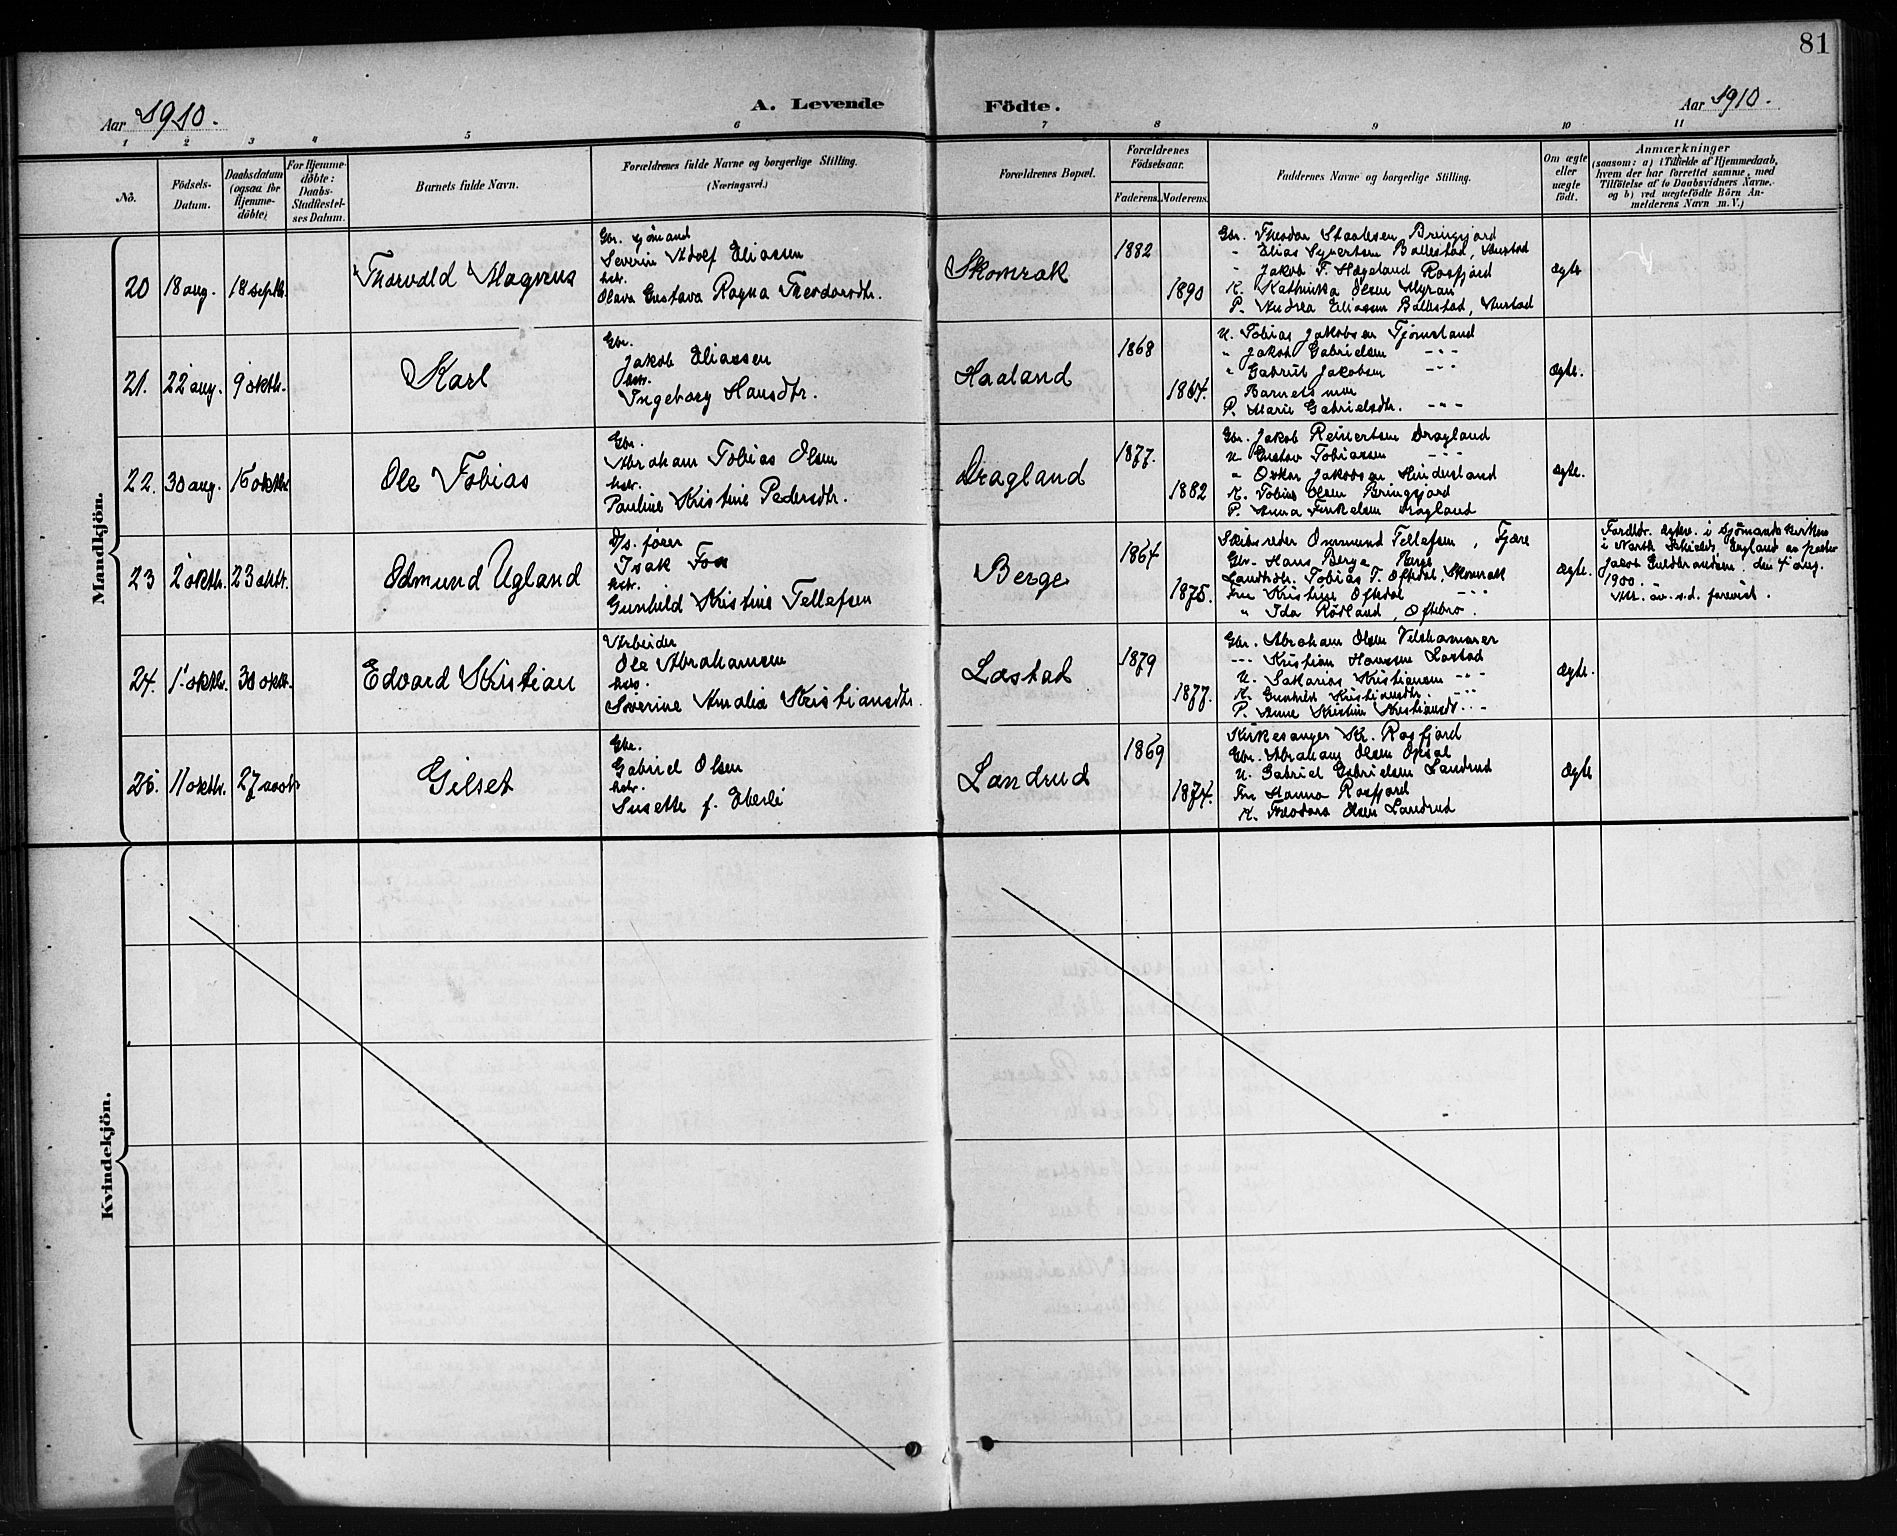 81
Aar 1910.
A. Levende Födte.
Aar 1910.
1 2 3 4 5 6 7 8 9 10 11
No.
Födsels-Datum.
Daabsdatum (ogsaa for Hjemme-döbte)
For Hjemme-döbte: Daabs-Stadfæstel-ses Datum.
Barnets fulde Navn.
Forældrenes fulde Navne og borgerlige Stilling.
(Næringsvei.)
Forældrenes Bopæl.
Forældrenes Födselsaar.
Faderens.
Moderens.
Faddernes Navne og borgerlige Stilling.
Om ægte eller uægte födt.
Anmærkninger
(saasom: a) i Tilfælde af Hjemmedaab,
hvem der har forrettet samme, med
Tilföielse af to Daabsvidners Navne,
og b) ved uægtefödte Börn An-
melderens Navn m. V.)
Mandkjön.
20 18 aug. 18 septb. Thorvald Magnus
Gbr. sjömand
Severin Adolf Eliassen
hstr.
Olava Gustava Ragna Theodorsdtr.
Skomrak 1882 1890
Gbr. Theodor Staalesen Bringsjord
" Elias Syvertsen Ballestad, Austad
" Jakob T. Hægeland Rosfjord
K. Kathinka Olsen Myran
P. Andrea Eliassen Ballestad, Austad
ægte
21. 22 aug. 9 oktb. Karl
Gbr.
Jakob Eliassen
hstr.
Ingeborg Hansdtr.
Haaland 1868
U. Tobias Jakobsen Tjömsland
" Jakob Gabrielsen -"-
" Gabriel Jakobsen -"-
Barnets mor
P. Marie Gabrielsdtr. -"-
ægte.
22. 30 aug. Ole Tobias
Gbr.
Abraham Tobias Olsen
hstr.
Pauline Kristine Pedersdtr.
Dragland 1877. 1882
Gbr. Jakob Reinertsen Dragland
U. Gustav Tobiassen -"-
" Oskar Jakobsen
K. Tobine Olsen Bringsjord
P. Anna Dragland
ægte.
23 2 oktb. 23 oktb. Odmund Ugland
D/s. förer
Isak Foss
hstr.
Gunhild Kristine Tellefsen
Berge 1864 1875.
Skibsreder Ommund Tellefsen, Fjære
Gbr. Hans Berge, Berge
Landhdl. Tobias T. Öftedal, Skomrak
Fru Kristine Öftedal -"-
" Ida Rödland, Öftebro.
ægte.
Forældr. ægtev. i sjömandskirken
i North Schields, England av pastor
Jacob Guldbrandsen den 4 aug.
1900.
Att. av. s.d. forevist.
24. 1. oktb. 30 oktb. Edvard Kristian
Arbeider
Ole Abrahamsen
hstr.
Severine Amalie Kristiansdtr.
Læstad 1879 1877.
Gbr. Abraham Olsen
-"- Kristian Hanssen Læstad
U. Sakarias Kristiansen -"-
K. Gunhild Kristiansdtr. -"-
P. Anne Kristine Kristiansdt. -"-
ægte.
25. 11 oktb. 27 novb. Gilset
Gbr.
Gabriel Olsen
hstr.
Susette f. Eberli
Landrud 1869 1874.
Kirkesanger Kr. Rosfjord
Gbr. Abraham Olsen Opsal
U. Gabriel Gabrielsen Landrud
Fru Hanna Rosfjord
K. Theodora Olsen Landrud
ægte
Kvindekjön.